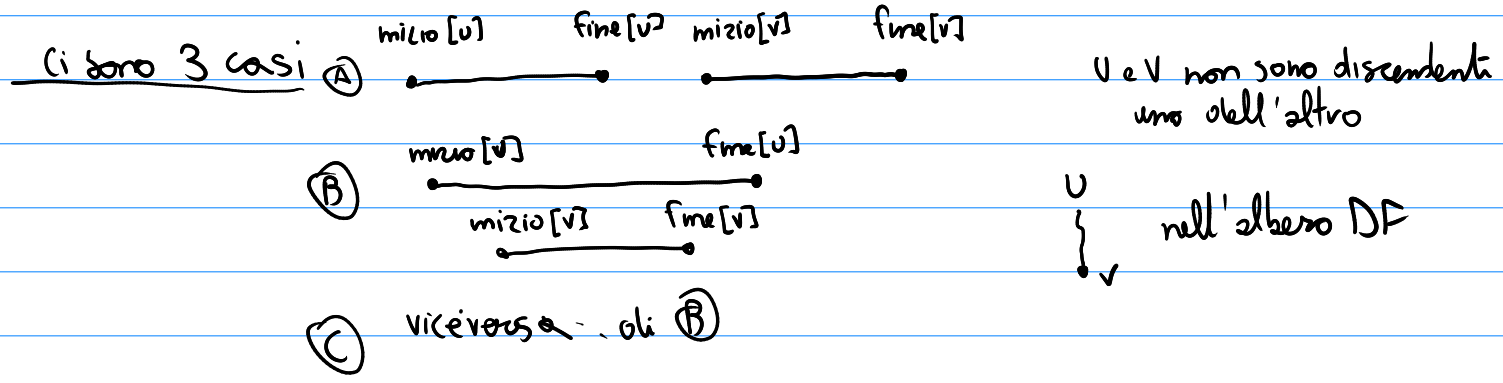 Ci sono 3 casi
A inizio [u] fine [u] inizio [v] fine [v]
U e V non sono discendenti
uno dell'altro
B inizio [u] fine [u]
inizio [v] fine [v]
U
V
nell'albero DF
C viceversa di B